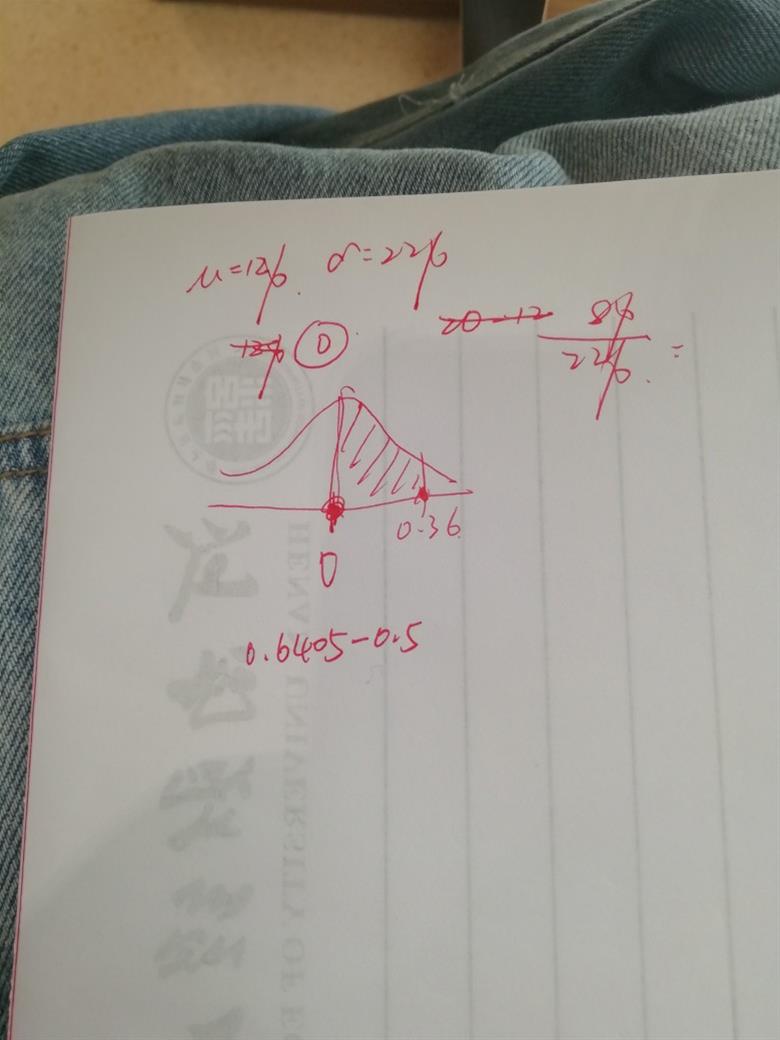 μ=12% σ=22%
20-12 8%
12% 0 22% =
0.36
0
0.6405-0.5